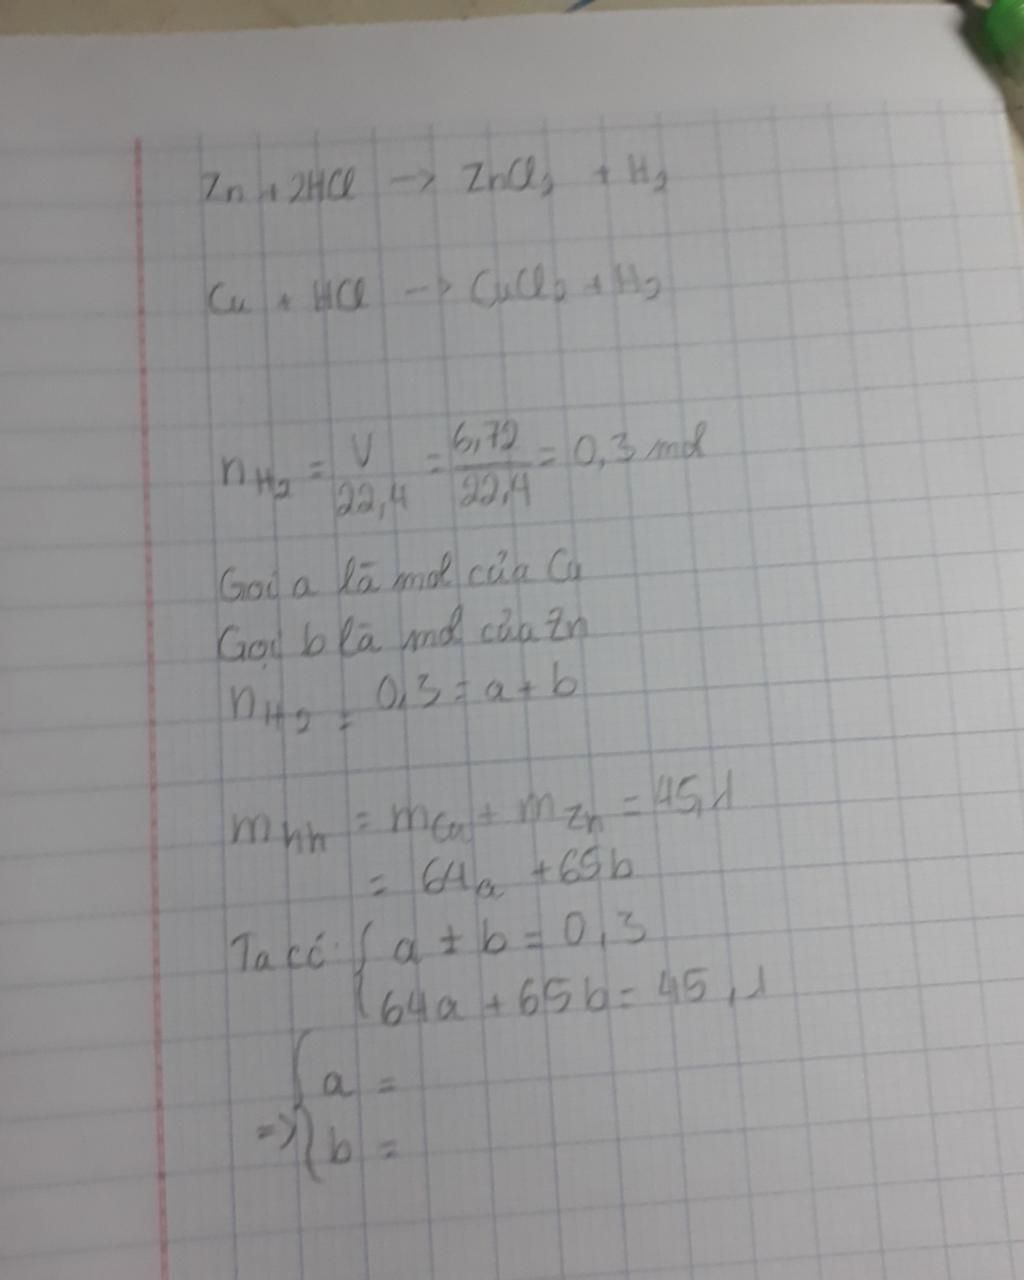 Zn + 2HCl → ZnCl₂ + H₂
Cu + HCl → CuCl₂ + H₂
n_H₂ = V/22,4 = 6,72/22,4 = 0,3 mol
Gọi a là mol của Cu
Gọi b là mol của Zn
n_H₂ = 0,3 = a + b
m_hh = m_Cu + m_Zn = 45,1
= 64a + 65b
Ta có: { a + b = 0,3
{ 64a + 65b = 45,1
=> { a =
{ b =